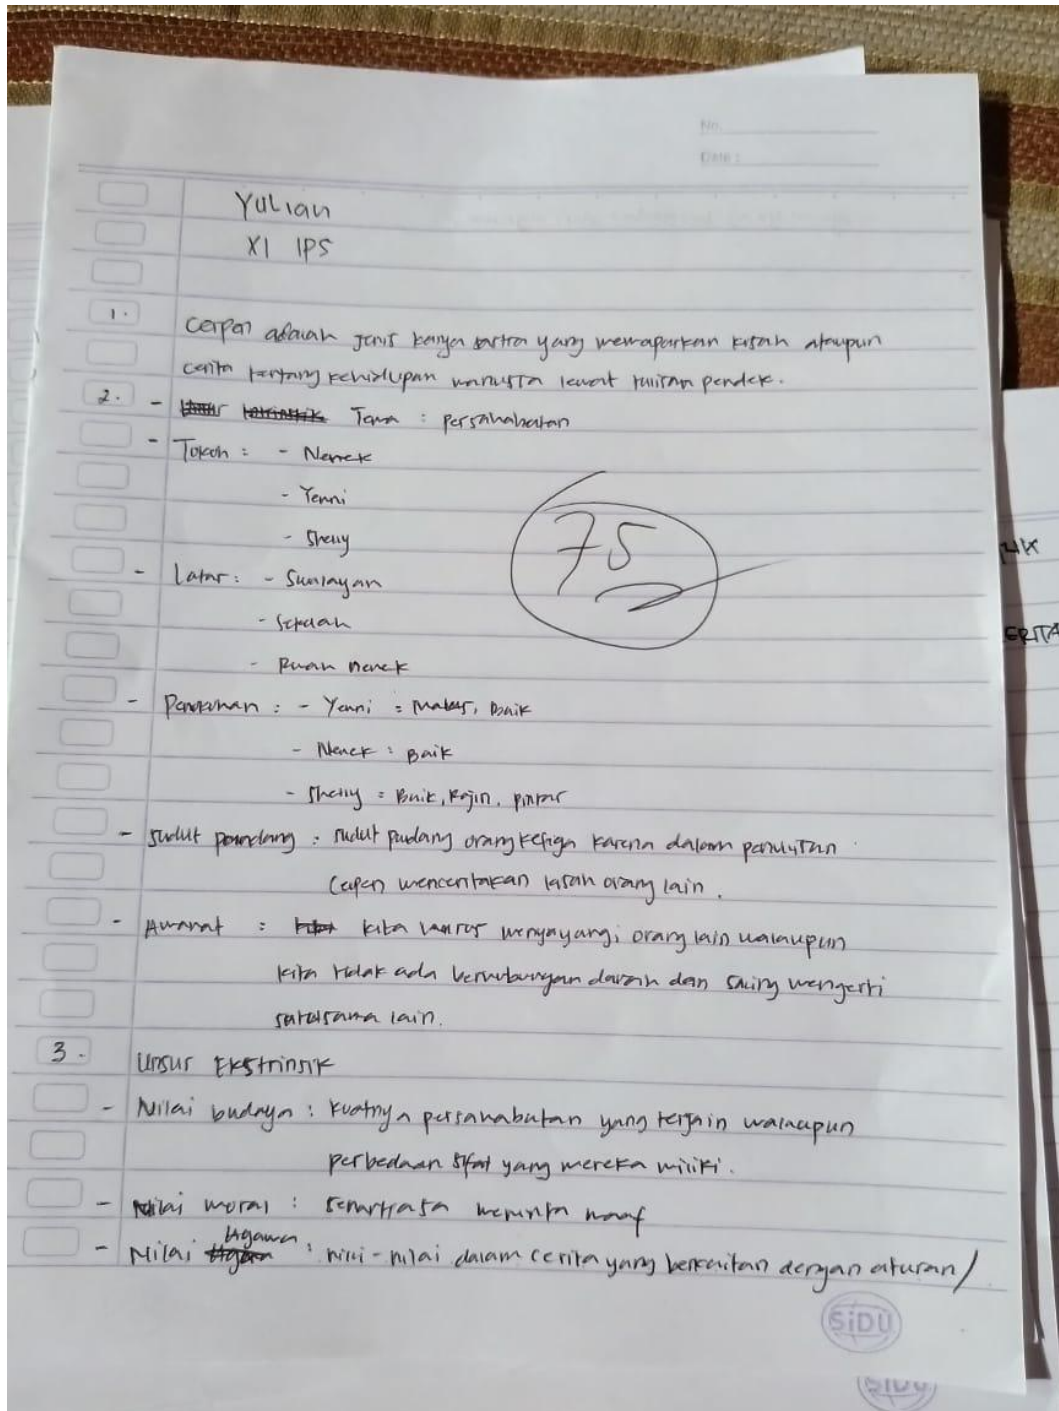 No.
Date :
Yulian
XI IPS
1. Cerpen adalah jenis karya sastra yang memaparkan kisah ataupun
cerita tentang kehidupan manusia lewat tulisan pendek.
2. - Tema : persahabatan
- Tokoh : - Nenek
- Yenni
- Shelly
- Latar : - Sunlayan
- Sekolah
- Ruah nenek
- Penokohan : - Yenni : Males, Baik
- Nenek : Baik
- Shelly : Baik, Rajin, pintar
75
- Sudut pandang : sudut pudang orang ketiga karena dalam
Cerpen menceritakan kisah orang lain.
- Amanat : kita harus menyayangi orang lain walaupun
kita tidak ada berhubungan darah dan saling mengerti
satu sama lain.
3. Unsur Ekstrinsik
- Nilai budaya : kuatnya persahabatan yang terjain walaupun
perbedaan sifat yang mereka miliki.
- Nilai moral : senantiasa meminta maaf
- Nilai Agama : nilai-nilai dalam cerita yang berkaitan dengan aturan/
SiDU
SIDU
UK
ERITA